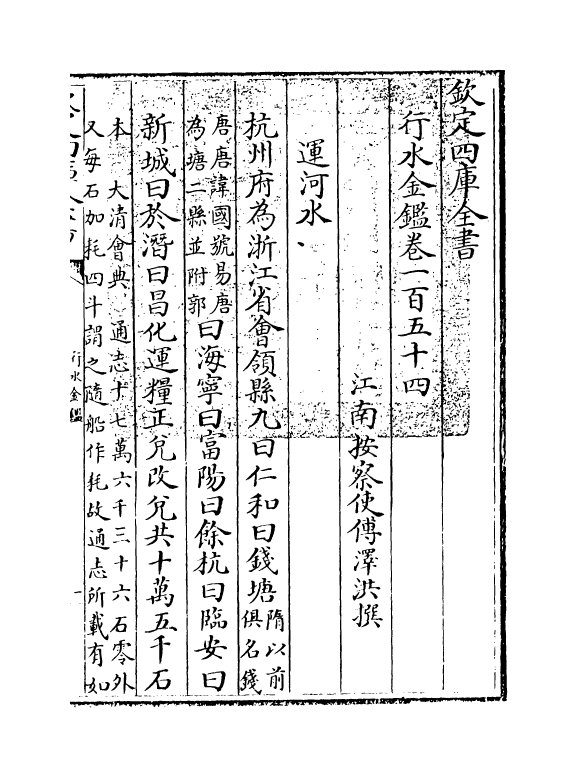 欽定四庫全書
行水金鑑卷一百五十四
江南按察使傅澤洪撰
運河水
杭州府為浙江省會領縣九曰仁和曰錢塘隋以前俱名錢
唐唐諱國號易唐為塘二縣並附郭曰海寧曰富陽曰餘杭曰臨安曰
新城曰於潛曰昌化運糧正兌改兌共十萬五千石
本 大清會典 通志十七萬六千三十六石零外
又每石加耗四斗謂之隨船作耗故通志所載有如
行水金鑑
一